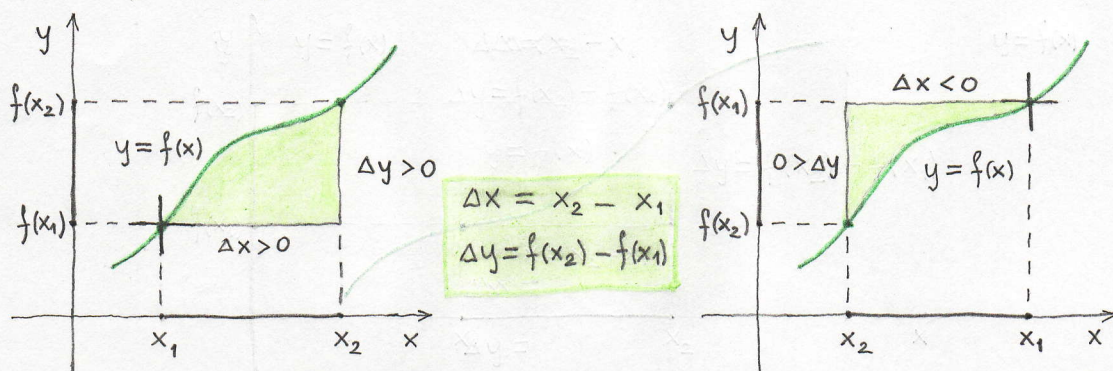 y
f(x₂)
y = f(x)
Δy > 0
f(x₁)
Δx > 0
x₁
x₂
x
Δx = x₂ - x₁
Δy = f(x₂) - f(x₁)
y
Δx < 0
f(x₁)
0 > Δy
y = f(x)
f(x₂)
x₂
x₁
x